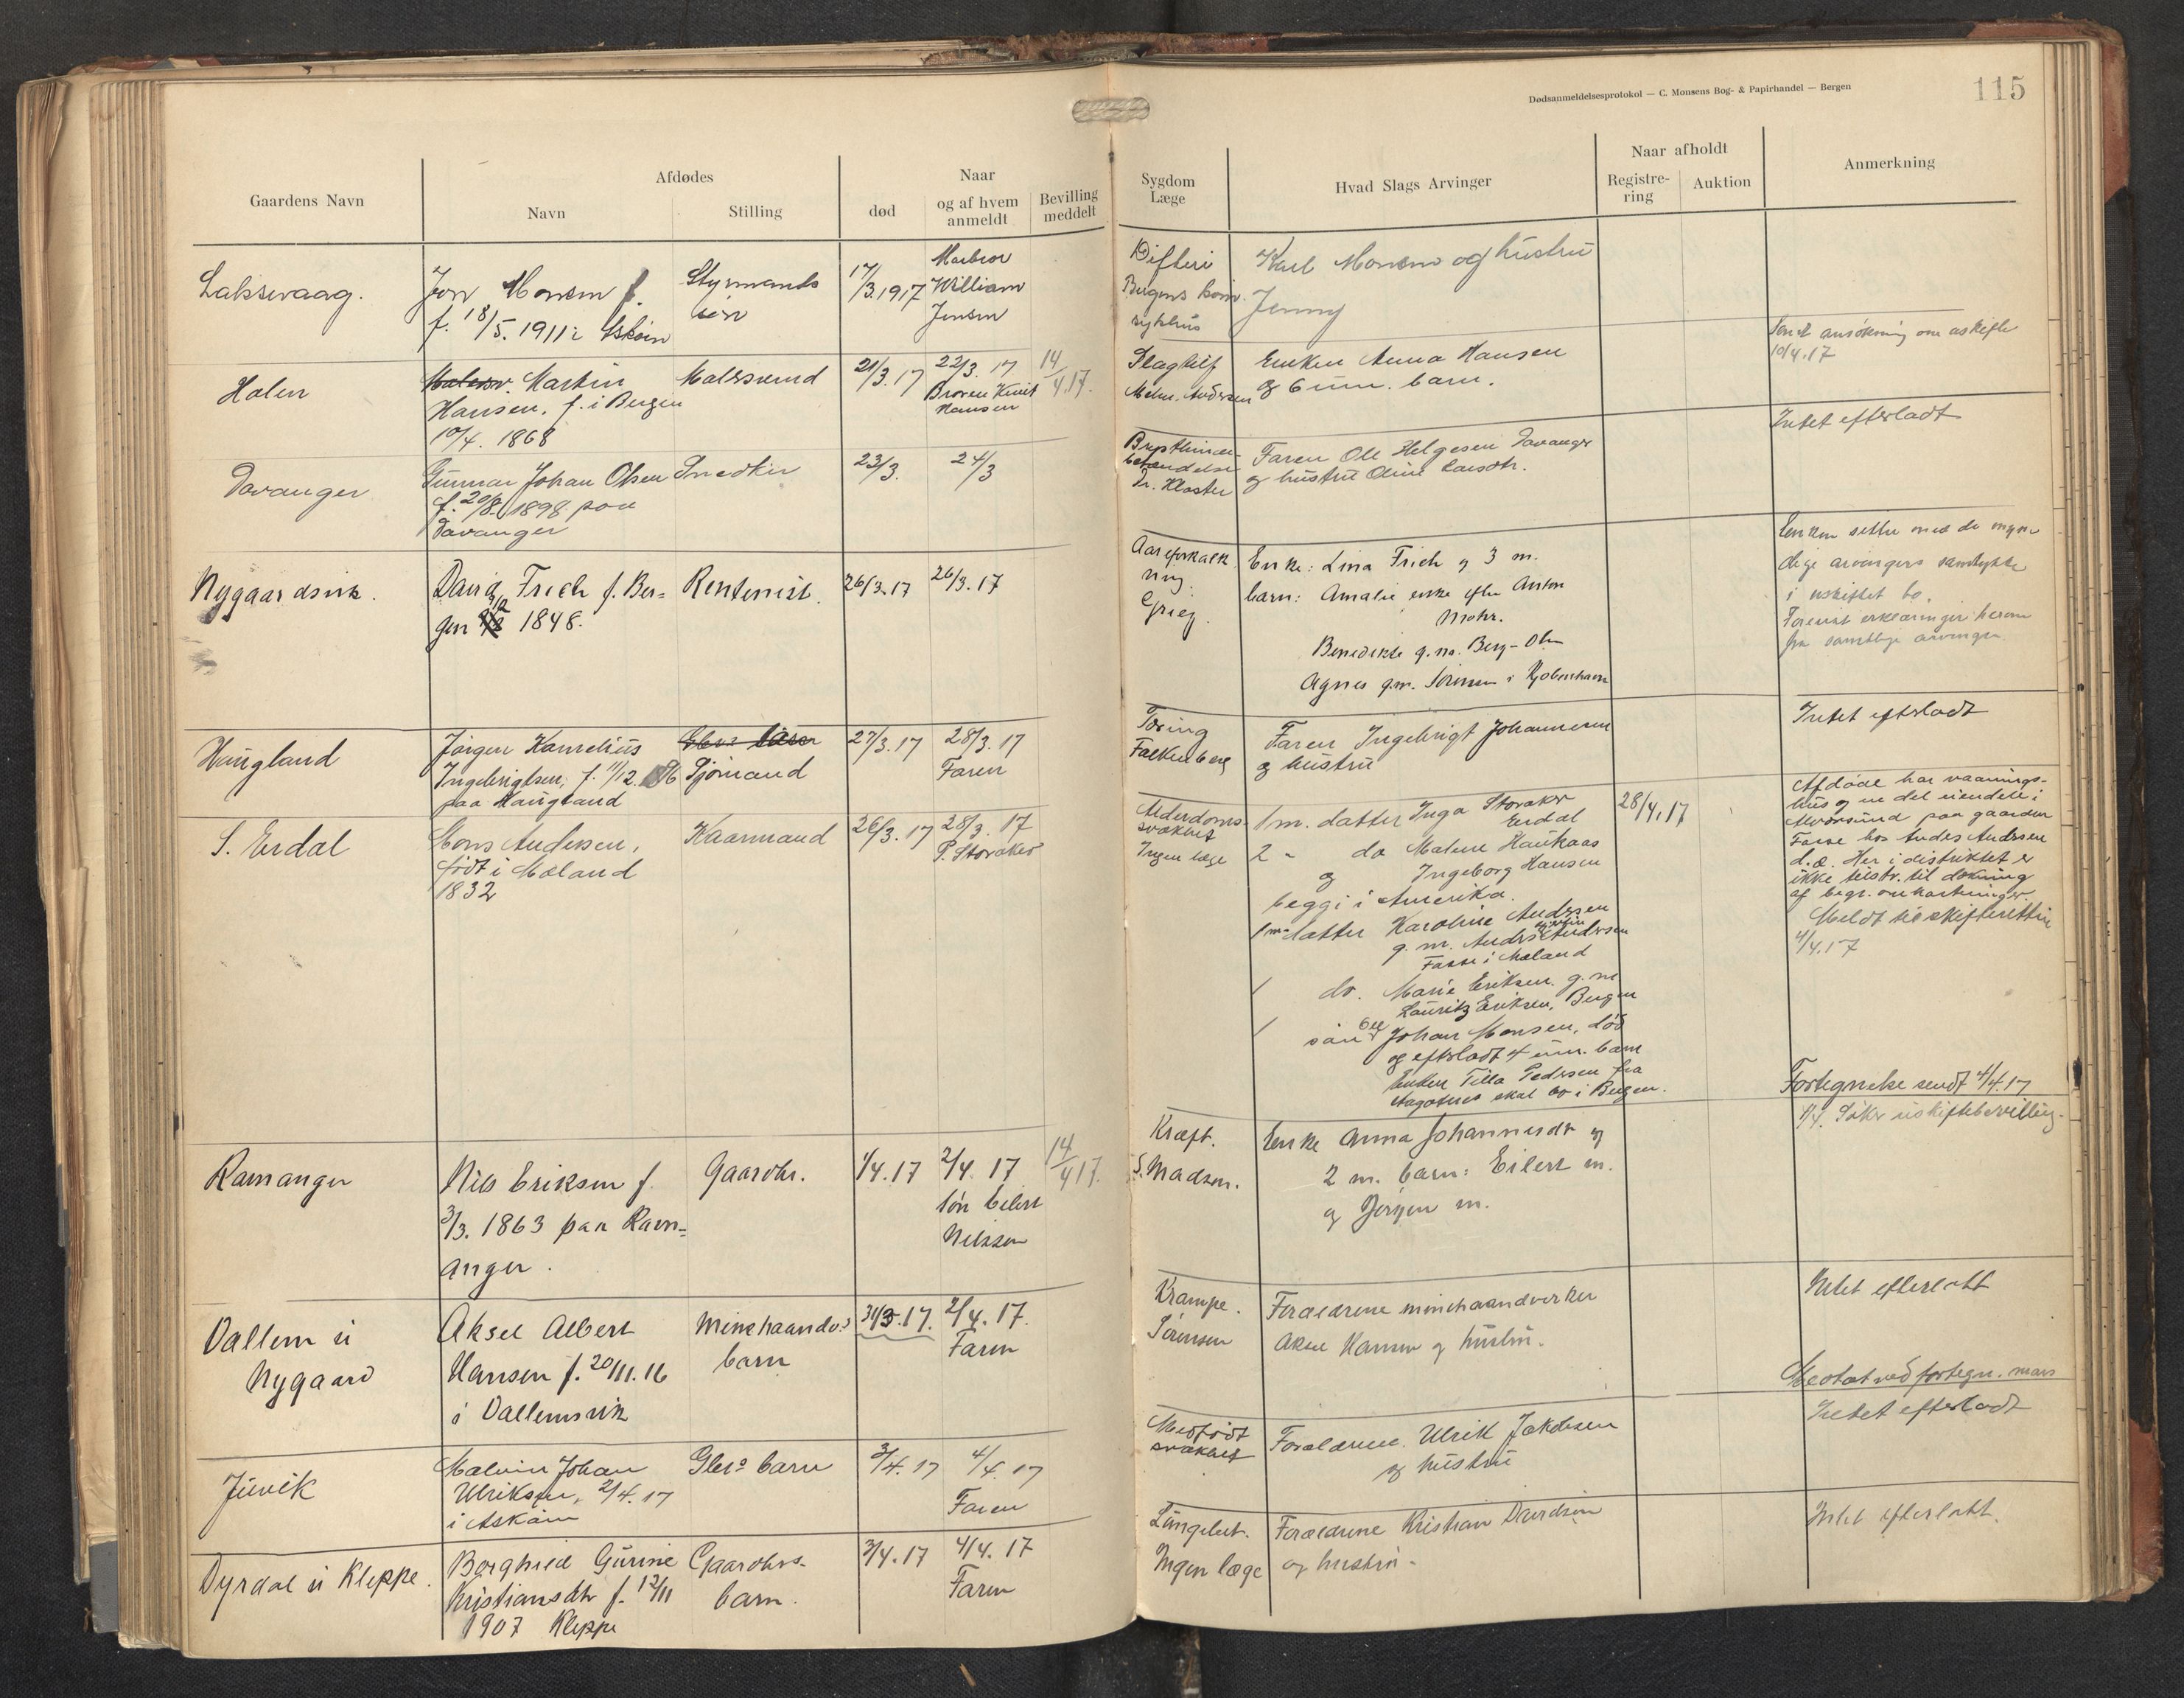 Dødsanmeldelsesprotokol — C. Monsens Bog- & Papirhandel — Bergen
115
Gaardens Navn
Afdødes
Navn
Stilling
Naar
død
og af hvem
anmeldt
Bevilling
meddelt
Sygdom
Læge
Hvad Slags Arvinger
Naar afholdt
Registre-
ring
Auktion
Anmerkning
Laksevaag.
Jon Monsen f.
f. 18/5. 1911 i
Styrmands
søn
17/3.1917
Morbror
William
Jensen
Difteri
Bergens kom.
sykehus
Karl Monsen og hustru
Jenny
Holen
Martin
Hansen. f. i Bergen
10/4. 1868
Malersvend
21/3. 17
22/3. 17
Broren Knut
Hansen
14/4.17.
Slagtilf
Melm. Andersen
Enken Anna Hansen
og 6 um. barn.
Sendt ansøkning om uskifte
10/4.17
Davanger
Gunnar Johan Olsen
f. 20/8. 1898 paa
Davanger
Snedker
23/3.
24/3
Brysthinde-
betændelse
Dr. Kloster
Faren Ole Helgesen Davanger
og hustru Oline Larsdtr.
Intet efterladt
Nygaardsvik.
David Frich f. Ber-
gen 1848.
Rentenist.
26/3.17
26/3. 17
Aareforkalk
ning.
Grieg.
Enke: Lina Frich og 3 m.
barn: Amalie enke efter Anton
Mohr.
Benedikte g.m. Berg-Olsen
Agnes g.m. Sørensen i Kjøbenhavn
Enken sitter med de myn
dige arvingers samtykke
i uskiftet bo.
Forevist erklæringer herom
fra samtlige arvinger.
Haugland
Jørgen Kornelius
Ingebrigtsen, f. 11/12. 96
paa Haugland
Sjømand
27/3.17
28/3. 17
Faren
Tæring
Falkenberg
Faren Ingebrigt Johannesen
og hustru
Intet efterladt
S. Erdal
Mons Andersen,
født i Mæland
1832
Kaarmand
26/3. 17
28/3. 17
P. Storaker
Alderdoms-
svakhet
Ingen læge
1 m. datter Inga Storaker
Erdal
2 - do Malene Haukaas
og Ingeborg Hansen
begge i Amerika.
1 m. datter Karoline Andersen
g. m. Anders Andersen
Fosse i Mæland
1 do. Marie Eriksen g. m.
Lauritz Eriksen, Bergen
1 søn Johan Monsen, død
og efterladt 4 um. barn
Enken Tilla Pedersen fra
skal bo i Bergen.
28/4.17
Afdøde har vaanings-
hus og en del eiendele i
Alversund paa gaarden
Fosse hos Anders Andersen
d.æ. Her i distriktet er
ikke tilstr. til dækning
af begr. omkostninger.
Meldt til skifteretten
4/4.17
Fortegnelse sendt 4/4.17
Ramanger
Nils Eriksen f.
3/3. 1863 paa Ram-
anger.
Gaardbr.
1/4.17
2/4. 17
søn Eilert
Nilssen
14/4 17.
Kræft.
S. Madsen.
Enke Anna Johannesdtr og
2 m. barn: Eilert m.
og Jørgen m.
4/4. Søker uskiftebevilling.
Dallem u
Nygaard
Aksel Albert
Hansen f. 20/11. 16
i Dallemsvik
Minehaandv.s
barn
31/3.17.
2/4. 17.
Faren
Krampe.
Sørensen
Forældrene minehaandverker
Aksel Hansen og hustru.
Intet efterlatt
Juvik
Malvin Johan
Ulriksen, 2/4. 17
i Askøen
barn
3/4. 17
4/4. 17
Faren
Medfødt
svakhet
Forældrene. Ulrik Jakobsen
og hustru
Medtat ved fortegn. mars
Intet efterladt
Dyrdal u Kleppe.
Borghild Gurine
Kristiansdtr f. 12/11
1907 Kleppe
Gaardbrs.
barn.
3/4.17
4/4. 17
Faren
Lungebet.
Ingen læge
Forældrene Kristian Davidsen
og hustru.
Intet efterlatt.